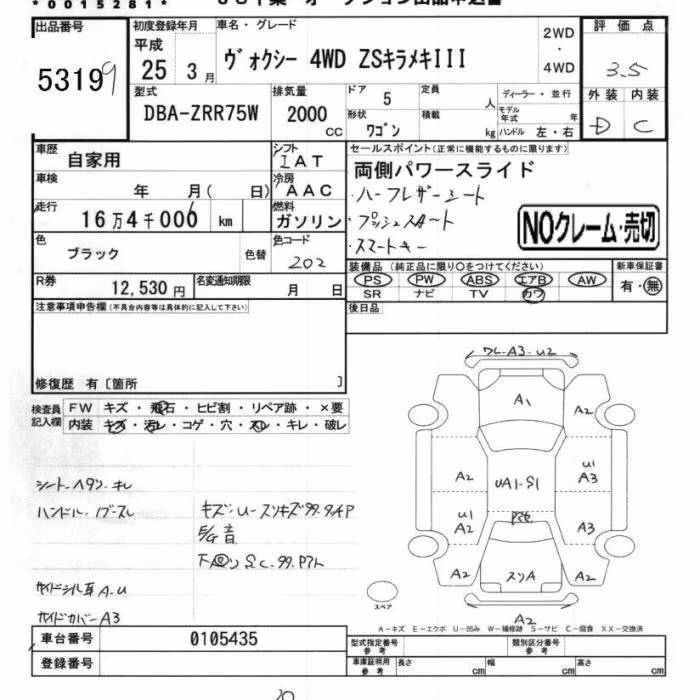 *0015281*
出品番号
53199
初度登録年月
平成
25 3月
車名・グレード
ヴォクシー 4WD ZSキラメキIII
2WD
・
4WD
評価点
3.5
外装 内装
D C
型式
DBA-ZRR75W
排気量
2000
cc
ドア
5
定員
人
形状
ワゴン
積載
kg
ディーラー・並行
モデル年式 年
ハンドル 左・右
車歴
自家用
シフト
I AT
車検
年 月( 日)
冷房
AAC
走行
16万4千006 km
燃料
ガソリン
色
ブラック
色替
色コード
202
R券
12,530円
名変通知期限
月 日
セールスポイント(正常に機能するものに限ります)
両側パワースライド
・ハーフレザーシート
・プッシュスタート
・スマートキー
NOクレーム・売切
装備品 (純正品に限り○をつけてください)
PS PW ABS エアB AW
SR ナビ TV カワ
新車保証書
有・無
後日品
注意事項申告欄(不具合内容等は具体的に記入して下さい)
修復歴 有〔箇所 〕
検査員
記入欄
FW キズ・飛石・ヒビ割・リペア跡・×要
内装 キズ・汚レ・コゲ・穴・スレ・キレ・破レ
シート・ヘタリ・キレ
ハンドル・
キズ・U・スリキズ
音
A-U
サイドカバー A3
A3・U2
A1
A2
A2
U1
A3
UA1・S1
U1
A2
A3
A2
スリA
A2
A2
スペア
A-キズ E-エクボ U-凹み W-補修跡 S-サビ C-腐食 XX-交換済
車台番号 0105435
登録番号
型式指定番号
参考
類別区分番号
参考
車庫証明用
参考
長さ cm
幅 cm
高さ cm
20